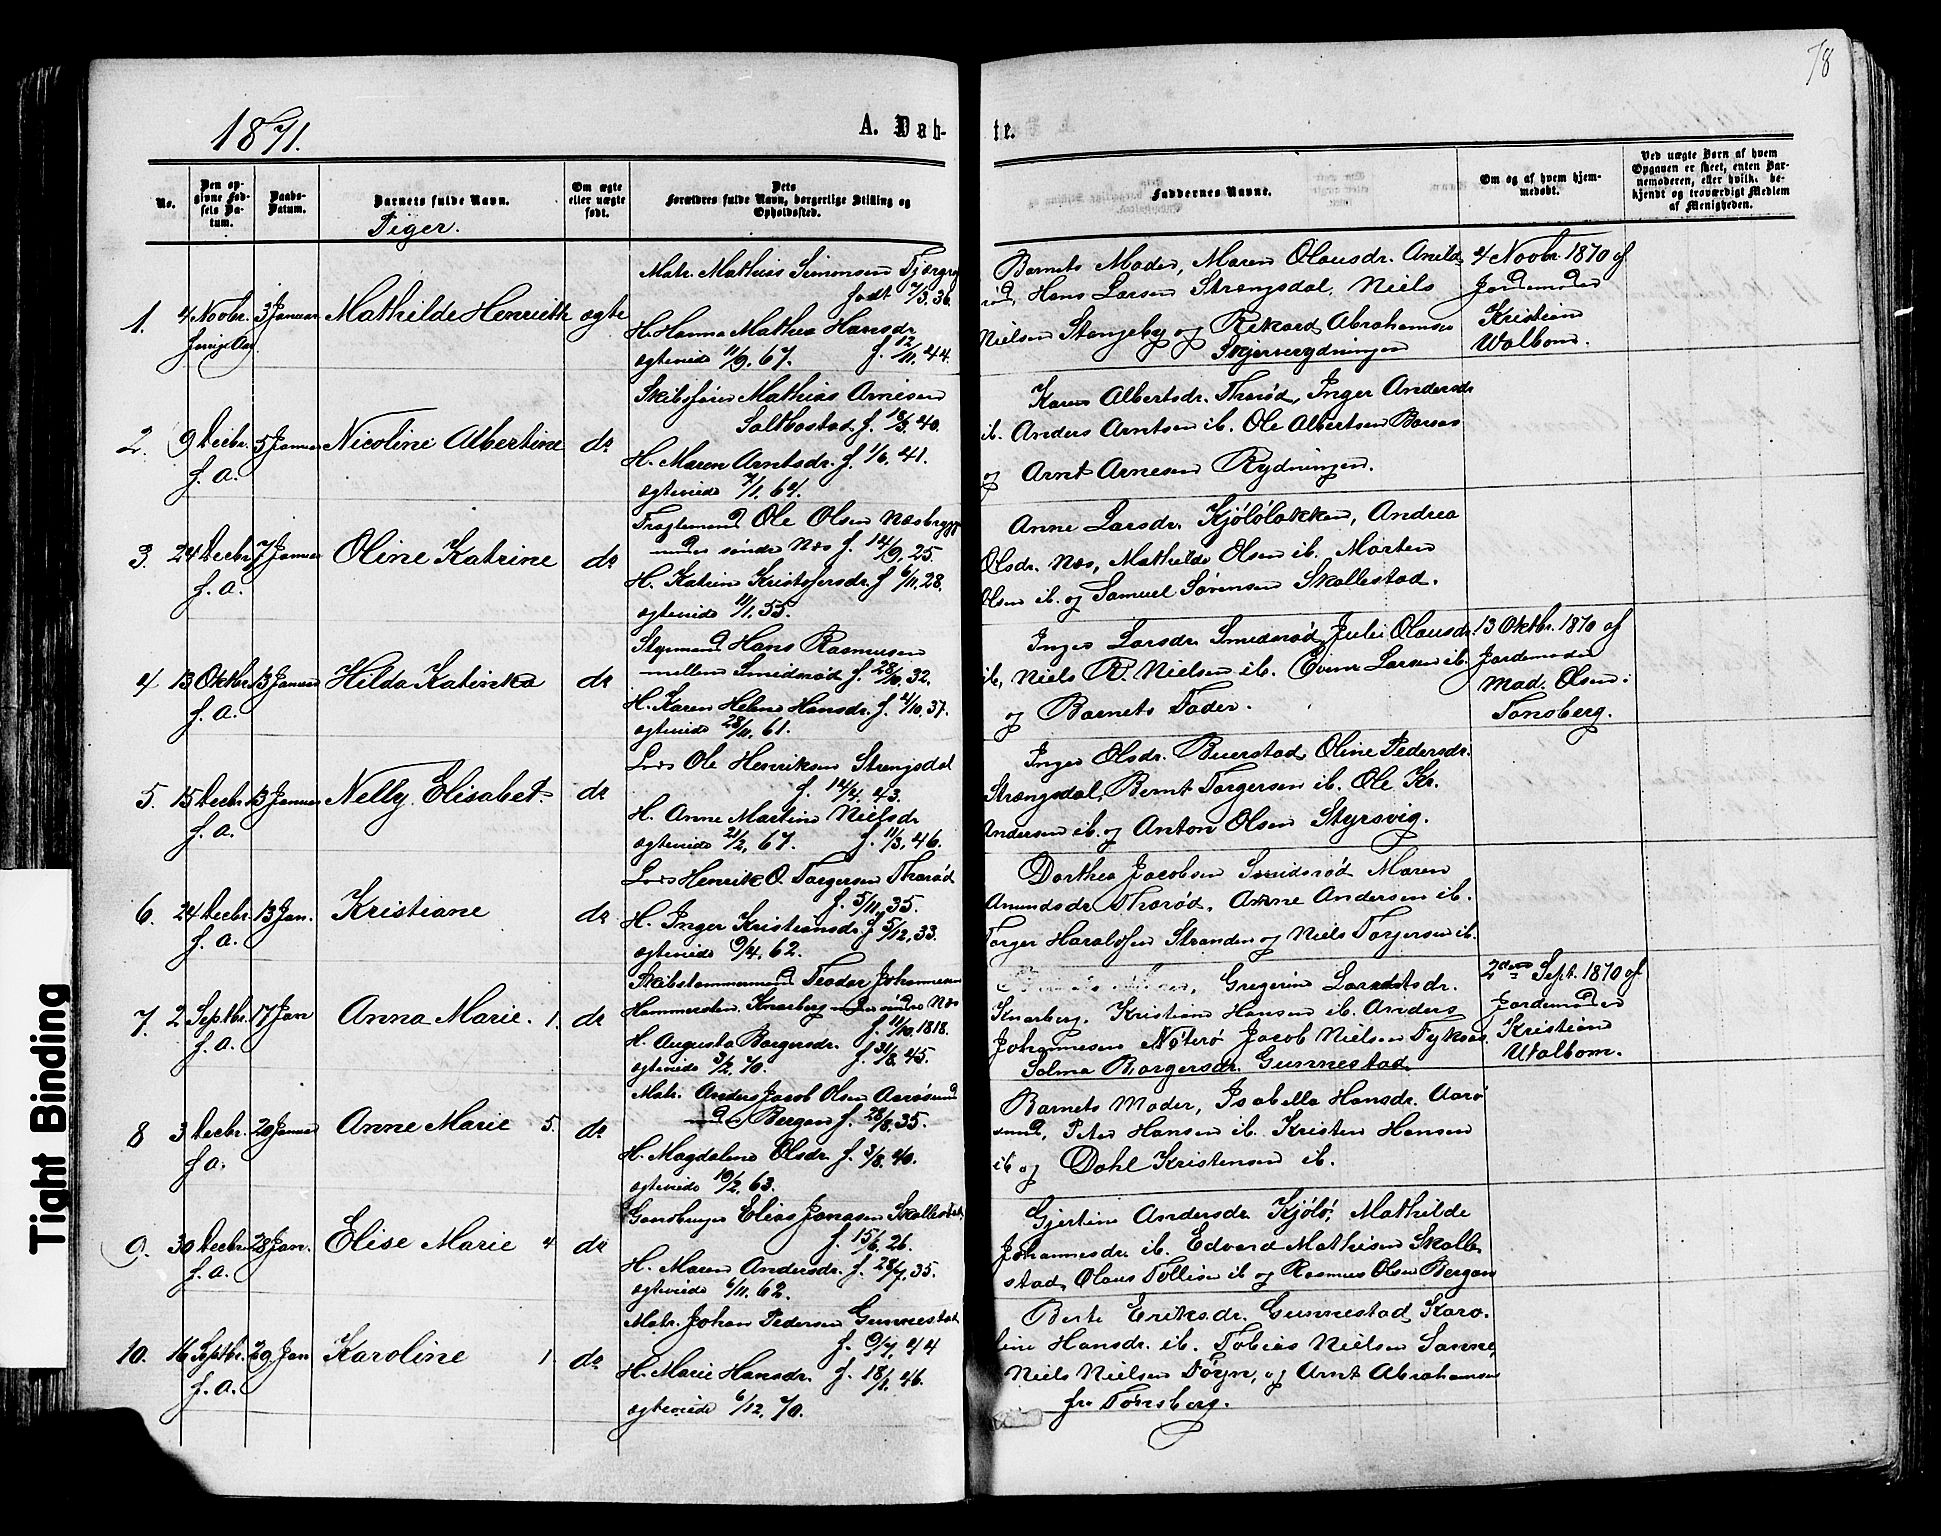 78
1871.
A. Døb-
te.
No.
Den op-
givne Fød-
sels Da-
tum.
Daabs-
Datum.
Barnets fulde Navn.
Piger.
Om ægte
eller uægte
født.
Dets
Forældres fulde Navn, borgerlige Stilling og
Opholdssted.
Faddernes Navne.
Om og af hvem hjem-
medøbt.
Ved uægte Børn af hvem
Opgaven er skeet, enten Bar-
nemoderen, eller hvilk. be-
kjendt og troværdigt Medlem
af Menigheden.
1.
4 Novbr.
forrige Aar
3 Januar
Mathilde Henriette
ægte
Matr. Mathias Simonsen
født 7/3. 36.
H. Hanna Mathea Hansdr
ægteviede 11/9. 67. f. 12/11. 44.
Barnets Moder, Maren Olausdr.
Hans Larsen Strængsdal, Niels
Nielsen Stangeby og Rikard Abrahamsen
4 Novbr. 1870 af
Jordemoder
Kristiane
Walbom.
2.
9 Decbr.
f. a.
5 Januar
Nicoline Albertine
do
Skibsfører Mathias Arnesen
Saltbostad f. 18/3. 40.
H. Maren Arntsdr. f. 1/6. 41.
ægteviede 7/1. 64.
Karen Albertsdr. Thorød, Inger Andersdr
ib. Anders Arntsen ib. Ole Albertsen
og Arnt Arnesen Rydningen.
3.
24 Decbr.
f. a.
7 Januar
Oline Katrine
do
Fragtemand Ole Olsen Næsbrygge
under søndre Næs f. 14/9. 25.
H. Katrine Kristofersdr. f 6/11. 28.
ægteviede 11/1. 55.
Anne Larsdr. Kjøløløkken, Andrea
Olsdr. Næs, Mathilde Olsen ib. Morten
Olsen ib. og Samuel Sørensen Skallestad.
4
13 Oktbr.
f. a.
13 Januar
Hilda Katinka
do
Styrmand Hans Rasmussen
mellem Smidsrød f. 28/10. 32.
H. Karen Helene Hansdr. f. 4/10. 37.
ægteviede 28/11. 61.
Inger Larsdr. Smidsrød, Julie Olausdr.
ib, Niels R. Nielsen ib. Even Larsen ib.
og Barnets Fader.
13 Oktbr. 1870 af
Jordemoder
Mad. Olsen
Tønsberg.
5.
15 Decbr.
f. a.
13 Januar
Nelly Elisabet.
do
Lods Ole Henriksen Strengsdal
f. 14/4. 43.
H. Anne Martine Nielsdr
ægteviede 21/2. 67. f. 11/3. 46.
Inger Olsdr. Buerstad, Oline Pedersdr.
Strængsdal, Bernt Torgersen ib. Ole Kr.
Andersen ib. og Anton Olsen Styrsvig.
6.
24 Decbr.
f. a.
13 Jan.
Kristiane
do
Lods Henrik O. Torgersen Thorød
f. 5/11. 35.
H. Inger Kristiansdr. f 5/12. 33.
ægteviede 9/4. 62.
Dorthea Jacobsen Smidsrød, Maren
Amundsdr Thorød, Arne Andersen ib.
Torger Haraldsen Stranden og Niels Torgersen ib.
7.
2 Septbr.
f. a.
17 Jan
Anna Marie.
1.
do
Skibstømmermand Teodor Johannesen
Hammersten Knarberg under søndre Næs
f. 11/10 1818.
H. Augusta Borgersdr. f. 31/8. 45.
ægteviede 3/2. 70.
Gregerine Larsdr.
Knarberg, Kristiane Hansen ib. Anders
Johannesen Nøterø Jacob Nielsen
Selma Borgersdr. Gunnestad.
2den Sept. 1870 af
Jordemoder
Kristiane
Walbom.
8
3 Decbr.
f a.
20 Januar
Anne Marie
5.
do
Matr. Anders Jacob Olsen Aarøsund
under Bergan f. 28/8. 35.
H. Magdalene Olsdr. f. 3/8. 40.
ægteviede 10/2. 63.
Barnets Moder, Isabella Hansdr. Aarø
sund, Peter Hansen ib. Kristen Hansen
ib og Dahl Kristensen ib.
9.
30 Decbr.
f. a.
28 Jan.
Elise Marie
4
do
Gaardbruger Elias Jonasen Skallestad
f. 15/6. 26.
H. Maren Andersdr. f. 28/7. 35.
ægteviede 6/11. 62.
Gjertine Andersdr. Kjølø, Mathilde
Johannesdr. ib. Edvard Mathisen Skalle
stad, Olaus Tollisen ib og Rasmus Olsen Bergan
10.
16 Septbr.
f. a.
29 Jan
Karoline
1.
do
Matr. Johan Pedersen Gunnestad
f. 9/7. 44
H. Marie Hansdr. f. 18/1. 46.
ægteviede 6/12. 70.
Berte Eriksdr. Gunnestad, Karo-
line Hansdr. ib. Tobias Nielsen Sanne,
Niels Nielsen Føyn, og Arnt Abrahamsen
fra Tønsberg.
Tight Binding